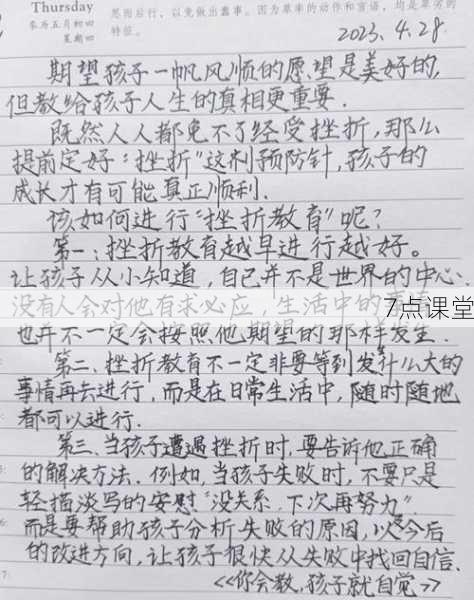 Thursday
思而后行，以免做出蠢事。因为草率的动作和言语，均是卑劣的
特征。
星期四
2023.4.28.
期望孩子一帆风顺的愿望是美好的,
但教给孩子人生的真相更重要.
既然人人都免不了经受挫折,那么
提前定好:挫折"这剂预防针,孩子的
成长才有可能真正顺利.
该如何进行"挫折教育"呢?
第一:挫折教育越早进行越好。
让孩子从小知道,自己并不是世界的中心.
没有人会对他有求必应,生活中的
7点课堂
也并不一定会按照他期望的那样发生.
第二、挫折教育不一定非要等到发什么大的
事情再去进行,而是在日常生活中,随时随地
都可以进行.
第三、当孩子遭遇挫折时,要告诉他正确
的解决方法.例如,当孩子失败时,不要只是
轻描淡写的安慰"没关系,下次再努力".
而是要帮助孩子分析失败的原因,以及今后
的改进方向,让孩子很快从失败中找回自信.
<<你会教,孩子就自觉>>